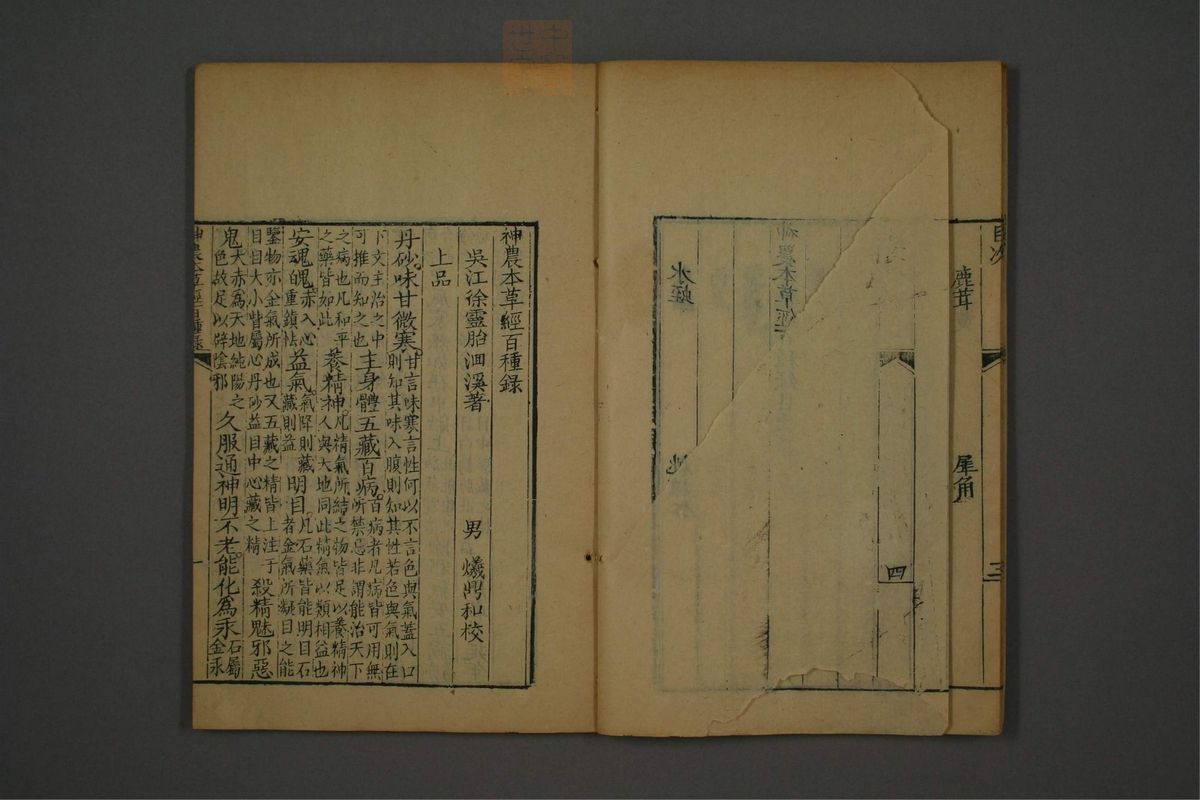 目次
三
鹿茸
犀角
四
神農本草經
水蛭
神農本草經百種錄
吳江徐靈胎洄溪著 男 爔鼎和校
上品
丹砂味甘微寒甘言味寒言性何以不言色與氣蓋入口則知其味入腹則知其性若色與氣則在
下文主治之中可推而知之也主身體五藏百病百病者凡病皆可用無所禁忌非謂能治天下
之病也凡和平之藥皆如此養精神凡精氣所結之物皆足以養精神人與天地同此精氣以類相益也
安魂魄赤入心重鎮怯益氣氣降則藏藏則益明目凡石藥皆能明目石者金氣所凝目之能
鑒物亦金氣所成也又五藏之精皆上注于目目大小眥屬心丹砂益目中心藏之精殺精魅邪惡
鬼大赤為天地純陽之色故足以辟陰邪久服通神明不老能化為汞石屬金汞
神農本草經百種錄
一